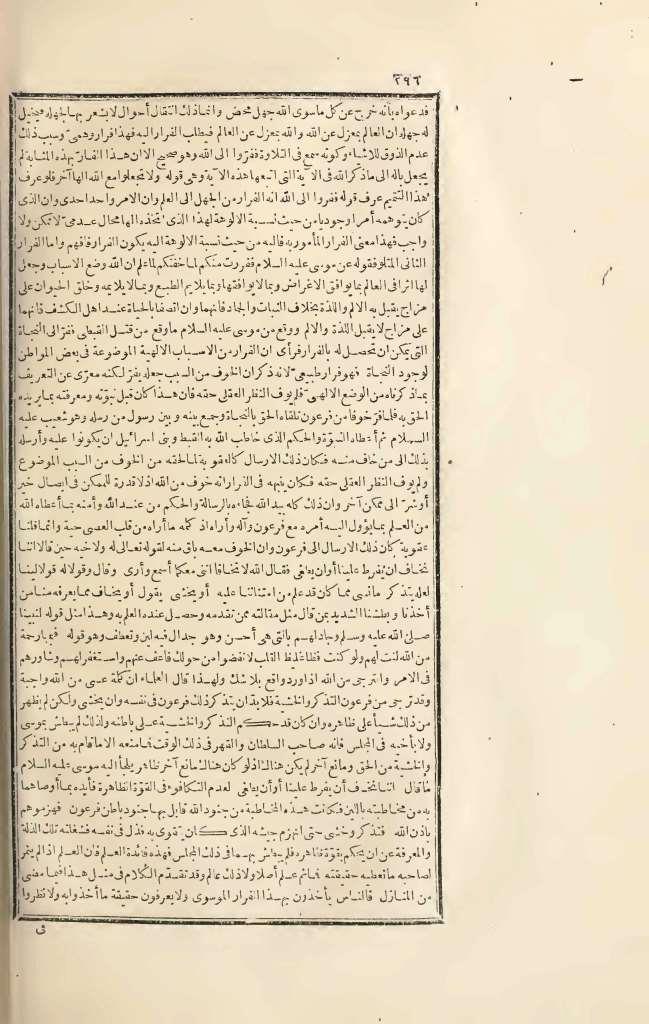 ٢٩٦
فدعواه بأنه خرج عن كل ماسوى الله جهل محض وانما ذلك انتقال أحوال لا يشعر بها لجهله فيتخيل
له جهله ان العالم بمعزل عن الله والله بمعزل عن العالم فيطلب الفرار اليه فهذا فرار وهمى وسبب ذلك
عدم الذوق للاشياء وكونه سمع فى التلاوة ففروا الى الله وهو صحيح الا ان هذا الفار بهذه المثابة لم
يجعل باله الى ما ذكر الله فى الآية التى اتبعها هذه الآية وهى قوله ولا تجعلوا مع الله الها آخر فلو عرف
هذا التتميم عرف قوله ففروا الى الله انه الفرار من الجهل الى العلم وان الامر واحد احدى وان الذى
كان يتوهمه أمرا وجوديا من حيث نسبة الالوهة لهذا الذى اتخذه الها محال عدمى لا ممكن ولا
واجب فهذا معنى الفرار المأمور به فاليه من حيث نسبة الالوهة اليه يكون الفرار فافهم واما الفرار
الثانى المتلوّ فقوله عن موسى عليه السلام ففررت منكم لما خفتكم لما علم ان الله وضع الاسباب وجعل
لها اثرا فى العالم بما يوافق الاغراض وبما لا يوافقها وبما يلايم الطبع وبما لا يلايمه وخلق الحيوان على
مزاج يقبل به الالم واللذة بخلاف النبات والجماد فانهما وان اتصفا بالحياة عند اهل الكشف فانهما
على مزاج لا يقبل اللذة والالم ووقع من موسى عليه السلام ما وقع من قتل القبطى ففر الى النجاة
التى يمكن ان تحصل له بالفرار فرأى ان الفرار من الاسباب الالهية الموضوعة فى بعض المواطن
لوجود النجاة فهو فرار طبيعى لانه ذكر ان الخوف من السبب جعله يفر لكنه معرّى عن التعريف
بما ذكرناه من الوضع الالهى فلم يوف النظر العقلى حقه فان هذا كان قبل نبوّته ومعرفته بما يريده
الحق به فلما فر خوفا من فرعون تلقاه الحق بالنجاة وجمع بينه وبين رسول من رسله وهو شعيب عليه
السلام ثم أعطاه النبوّة والحكم الذى خاطب الله به القبط وبنى اسرائيل ان يكونوا عليه وأرسله
بذلك الى من خاف منه فكان ذلك الارسال كالعقوبة لما لحقته من الخوف من السبب الموضوع
ولم يوف النظر العقلى حقه فكان ينبهه فى الفرار انه خوف من الله اذ لا قدرة للممكن فى ايصال خير
أو شر الى ممكن آخر وان ذلك كله بيد الله فجاءه بالرسالة والحكم من عند الله وأمنه بما أعطاه الله
من العلم بما يؤول اليه أمره مع فرعون وآله وأراه اذ كلمه ما أراه من قلب العصى حية وانما قلنا
عقوبة كان ذلك الارسال الى فرعون وان الخوف معه باق منه لقوله تعالى له ولاخيه حين قالا اننا
نخاف ان يفرط علينا أو ان يطغى فقال الله لا تخافا اننى معكما أسمع وأرى وقال وقولا له قولا لينا
لعله يتذكر ما نسى مما كان قد علم من امتناننا عليه أو يخشى يقول أو يخاف مما يعرفه منا من
أخذنا وبطشنا الشديد بمن قال مثل مقالته ممن تقدمه وحصل عنده العلم به وهذا مثل قوله لنبينا
صلى الله عليه وسلم وجادلهم بالتى هى أحسن وهو جدال فيه لين وتعطف وهو قوله فبما رحمة
من الله لنت لهم ولو كنت فظا غليظ القلب لانفضوا من حولك فاعف عنهم واستغفر لهم وشاورهم
فى الامر والترجى من الله اذا ورد واقع بلا شك ولهذا قال العلماء ان كلمة عسى من الله واجبة
وقد ترجى من فرعون التذكر والخشية فلا بد ان يتذكر ذلك فرعون فى نفسه وان يخشى ولكن لم يظهر
من ذلك شيأ على ظاهره وان كان قد حكم التذكر والخشية على باطنه ولذلك لم يبطش بموسى
ولا بأخيه فى المجلس فانه صاحب السلطان والقهر فى ذلك الوقت فما منعه الا ما قام به من التذكر
والخشية من الحق ومانع آخر لم يكن هناك اذ لو كان هناك مانع آخر ظاهر يلجأ اليه موسى عليه السلام
ما قال اننا نخاف أن يفرط علينا أو أن يطغى لعدم التكافؤ فى القوّة الظاهرة فأيده بما أوصاهما
به من مخاطبته باللين فكانت هذه المخاطبة من جنود الله قابل بها جنود باطن فرعون فهزموهم
باذن الله فتذكر وخشى حتى انهزم جيشه الذى كان يتقوى به فذل فى نفسه فشغلته تلك الذلة
والمعرفة عن ان يحكم بقوّة ظاهرة فلم يبطش بهما فى ذلك المجلس فهذه فائدة العلم فان العلم اذا لم يثمر
لصاحبه ما تعطيه حقيقته فما ثم علم أصلا ولا ذلك عالم وقد تقدم الكلام فى مثل هذا فيما مضى
من المنازل فالناس يأخذون بهذا الفرار الموسوى ولا يعرفون حقيقة ما أخذوا به ولا نظروا
فى